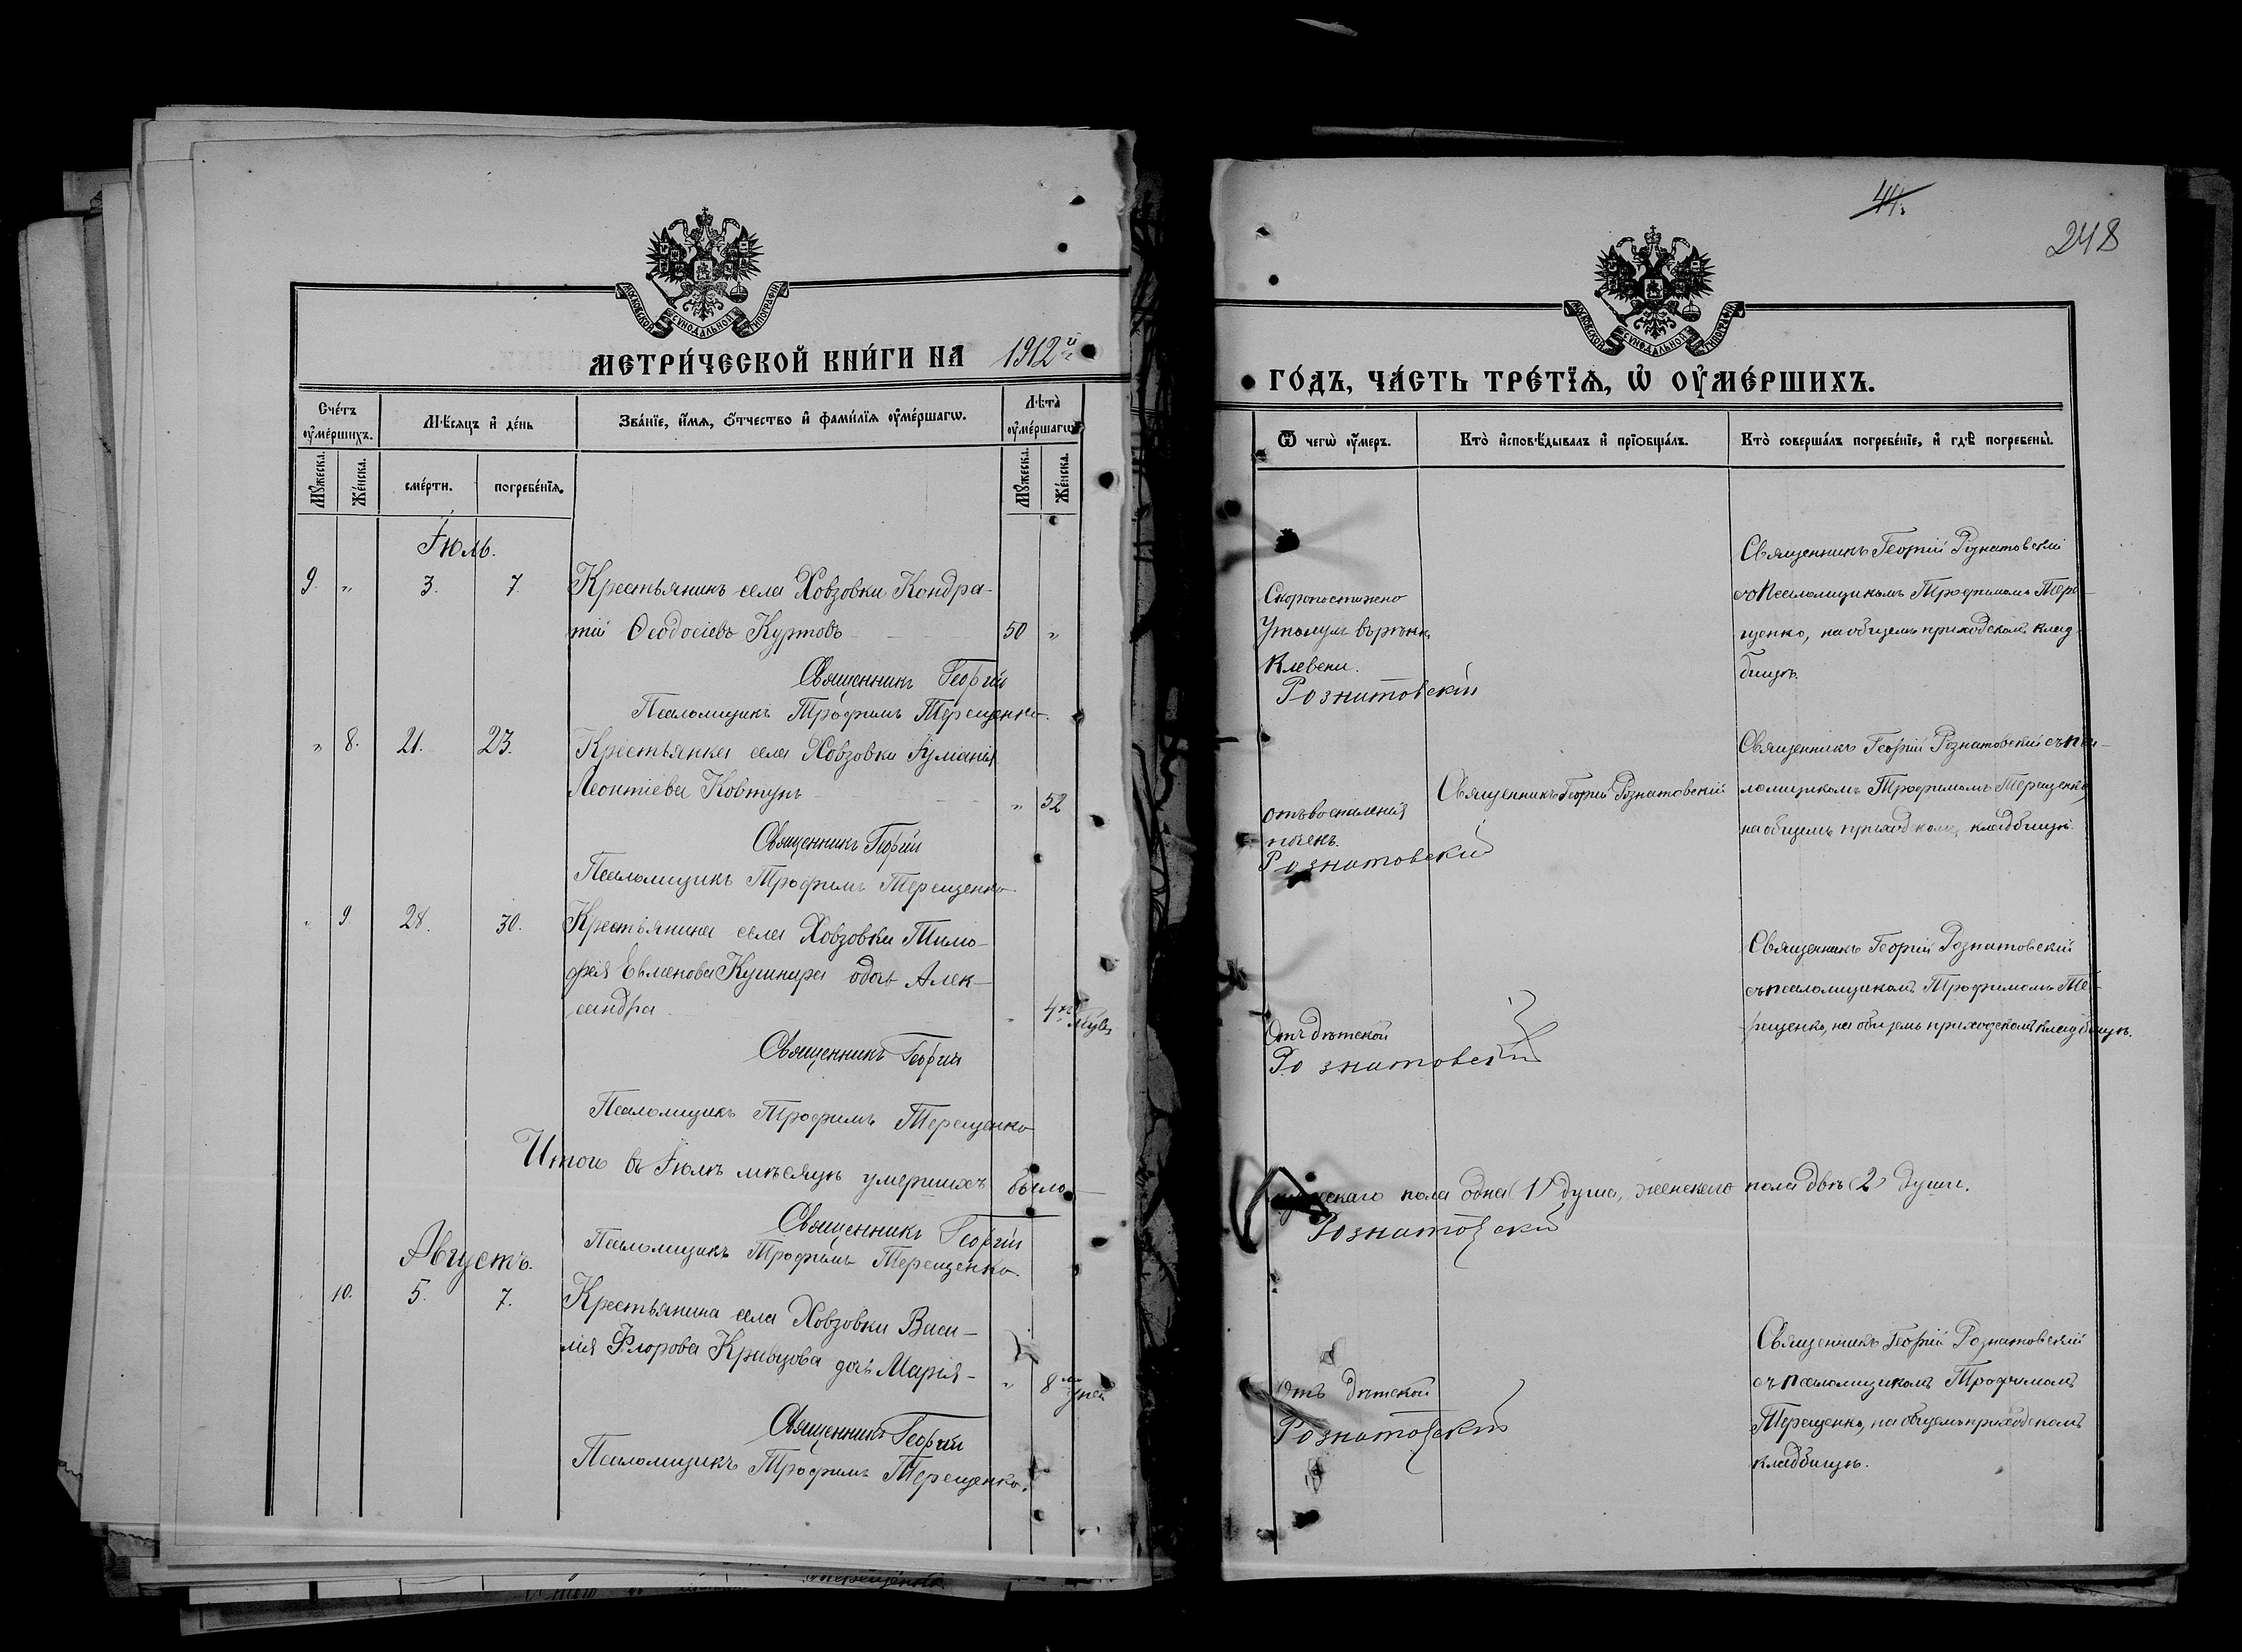 МОСКОВСКОЙ СѴНОДАЛЬНОЙ ТИПОГРАФІИ
МЕТРИ́ЧЕСКОЙ КНИ́ГИ НА 1912й
Сче́тъ ᲂу҆ме́ршихъ.
Мѣ́сяцъ и҆ де́нь
Зва́нїе, и҆́мѧ, ѻ҆́тчество и҆ фами́лїѧ ᲂу҆ме́ршагѡ.
Лѣта̀ ᲂу҆ме́ршагѡ
Мꙋ́жеска.
Же́нска.
сме́рти.
погребе́нїѧ.
Мꙋ́жеска.
Же́нска.
Іюль.
9. " 3. 7. Крестьянинъ села Ховзовки Кондра-
тій Ѳеодосіевъ Куртовъ 50 "
Священникъ Георгій
Псаломщикъ Трофимъ Терещенко.
" 8. 21. 23. Крестьянка села Ховзовки
Леонтіева Ковтунъ " 52
Священникъ Георгій
Псаломщикъ Трофимъ Терещенко.
" 9 28. 30. Крестьянина села Ховзовки Тимо-
фея Евменова Кушнира дочь Алек-
сандра " 4
Священникъ Георгій
Псаломщикъ Трофимъ Терещенко
Итого въ Іюлѣ мѣсяцѣ умершихъ было
Священникъ Георгій
Псаломщикъ Трофимъ Терещенко.
Августъ.
10. 5. 7. Крестьянина села Ховзовки Васи-
лія Флорова Кривцова дочь Марія- " 8 дней
Священникъ Георгій
Псаломщикъ Трофимъ Терещенко.
44.
248
МОСКОВСКОЙ СѴНОДАЛЬНОЙ ТИПОГРАФІИ
ГО́ДЪ, ЧА́СТЬ ТРЕ́ТЇѦ, Ѡ҆ ОУ҆МЕ́РШИХЪ.
Ѿ чегѡ̀ ᲂу҆́меръ.
Кто̀ и҆сповѣ́дывалъ и҆ прїѡбща́лъ.
Кто̀ соверша́лъ погребе́нїе, и҆ гдѣ̀ погребены̀.
Скоропостижно
Утонулъ въ рѣкѣ
Клевени.
Рознатовскій
Священникъ Георгій Рознатовскій
съ Псаломщикомъ Трофимомъ Тере-
щенко, на общемъ приходскомъ клад-
бищѣ.
отъ воспаленія
почекъ.
Рознатовскій
Священникъ Георгій Рознатовскій
Священникъ Георгій Рознатовскій съ пса-
ломщикомъ Трофимомъ Терещенко,
на общемъ приходскомъ кладбищѣ.
Отъ дѣтской
Рознатовскій
Священникъ Георгій Рознатовскій
съ псаломщикомъ Трофимомъ Те-
рещенко, на общемъ приходскомъ кладбищѣ.
мужскаго пола одна (1) душа, женскаго пола двѣ (2) души.
Рознатовскій
Отъ дѣтской
Рознатовскій
Священникъ Георгій Рознатовскій
съ псаломщикомъ Трофимомъ
Терещенко, на общемъ приходскомъ
кладбищѣ.